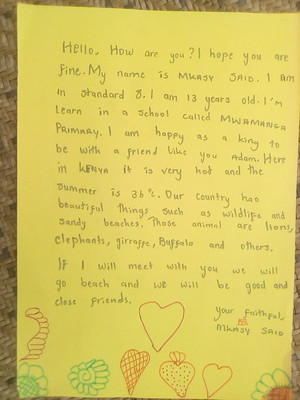 Hello, How are you? I hope you are
fine. My name is MKASY SAID. I am
in standard 8. I am 13 years old. I'm
learn in a school called MWAMANGA
PRIMARY. I am happy as a king to
be with a friend like you Adam. Here
in KENYA it is very hot and the
summer is 36°c. Our country has
beautiful things such as wildlife and
sandy beaches. Those animal are lions,
elephants, girraffe, Buffalo and others.
If I will meet with you we will
go beach and we will be good and
close friends.
your faithful,
MKASY SAID